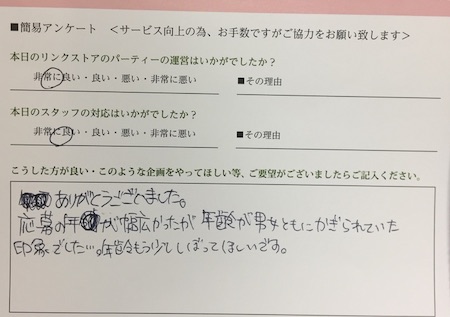 ■簡易アンケート　＜サービス向上の為、お手数ですがご協力をお願い致します＞
本日のリンクストアのパーティーの運営はいかがでしたか？
非常に良い・良い・悪い・非常に悪い　■その理由
本日のスタッフの対応はいかがでしたか？
非常に良い・良い・悪い・非常に悪い　■その理由
こうした方が良い・このような企画をやってほしい等、ご要望がございましたらご記入ください。
ありがとうございました。
応募の年が幅広かったが年齢が男女ともにかぎられていた
印象でした…。年齢もう少ししぼってほしいです。